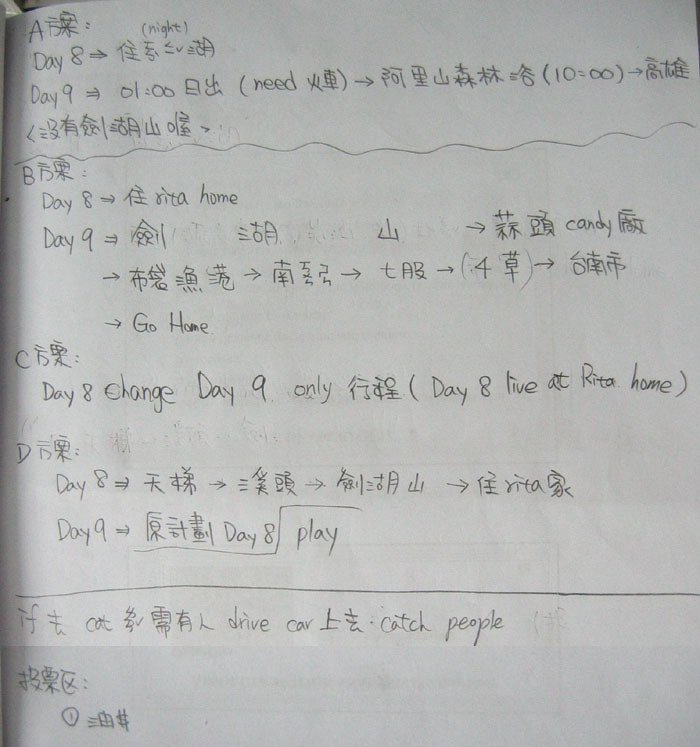 A方案:
(night)
Day 8 ⇒ 住奮起湖
Day 9 ⇒ 01:00 日出 (need 火車) → 阿里山森林浴 (10:00) → 高雄
<沒有劍湖山喔>
B方案:
Day 8 → 住 rita home
Day 9 → 劍 湖 山 → 蒜頭 candy 廠
→ 布袋漁港 → 南鯤鯓 → 七股 → (四草) → 台南市
→ Go Home.
C方案:
Day 8 change Day 9 only 行程 ( Day 8 live at Rita home )
D方案:
Day 8 ⇒ 天梯 → 溪頭 → 劍湖山 → 住 rita 家
Day 9 ⇒ 原計劃 Day 8 play
if 去 cat 纜 需有人 drive car 上去 catch people
投票区:
① 油井